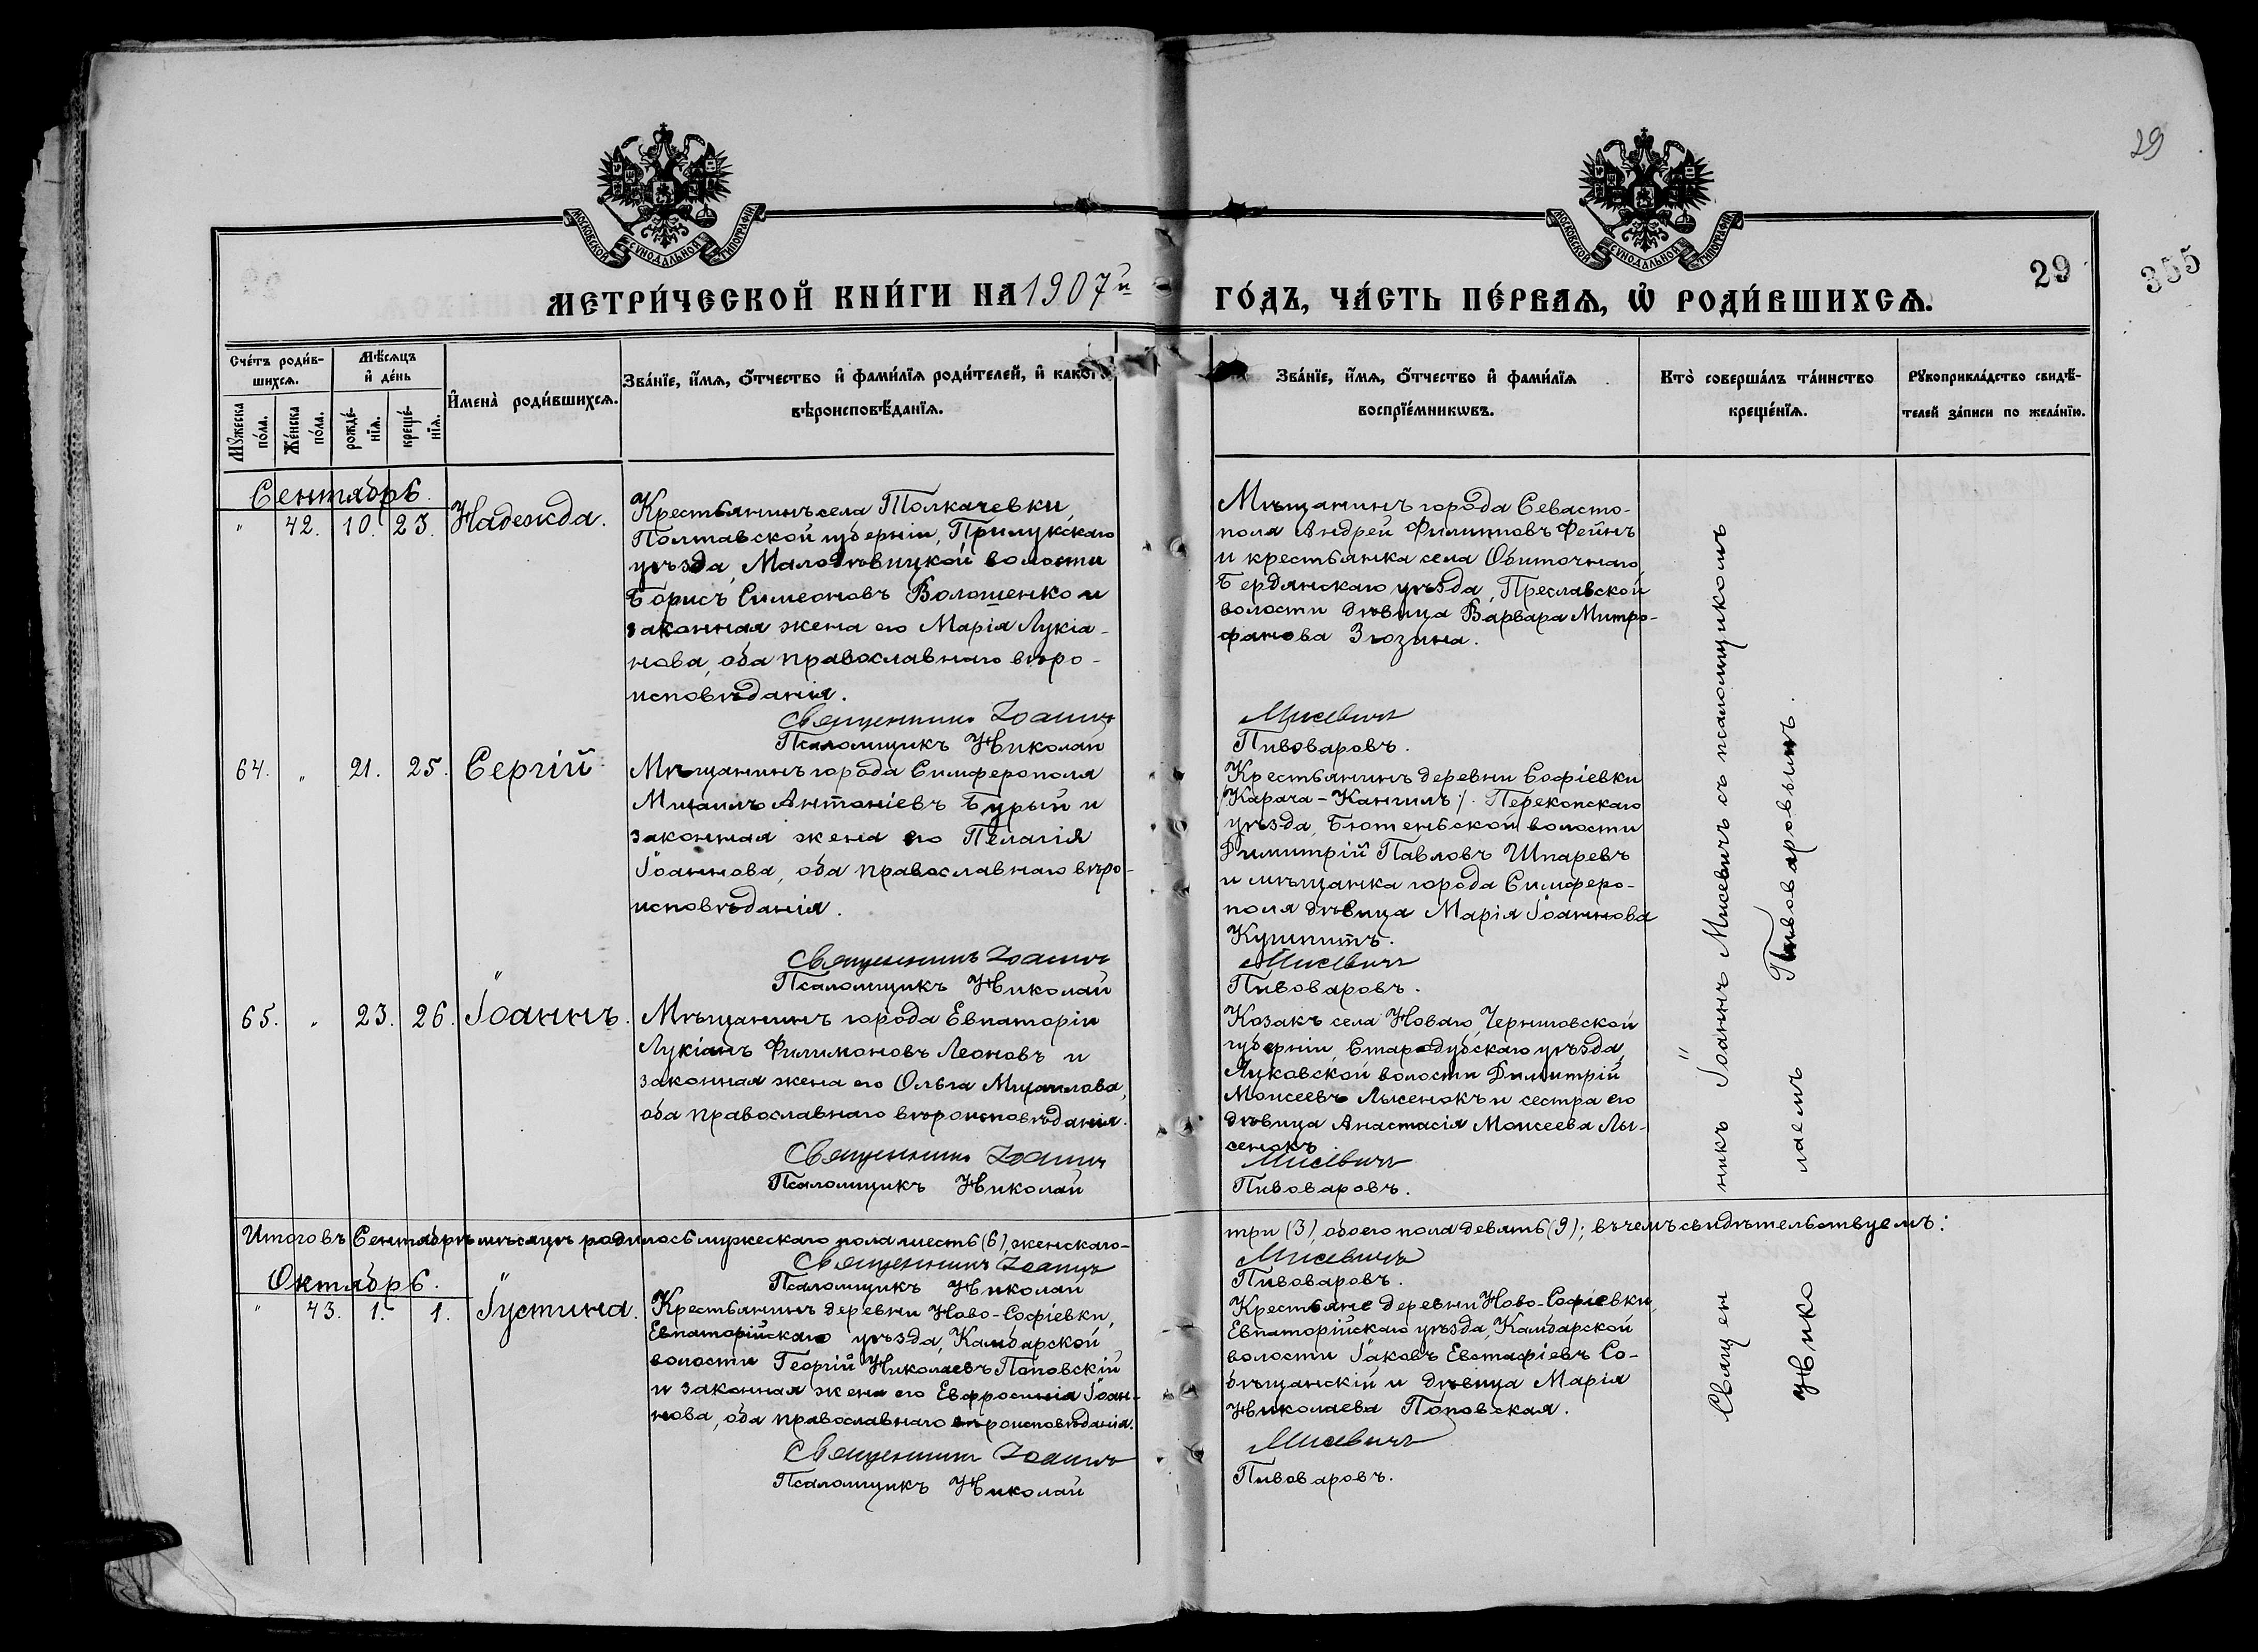 29
МОСКОВСКОЙ СѴНОДАЛЬНОЙ ТИПОГРАФІИ
МОСКОВСКОЙ СѴНОДАЛЬНОЙ ТИПОГРАФІИ
29
355
МЕТРИ́ЧЕСКОЙ КНИ́ГИ НА 1907й ГО́ДЪ, ЧА́СТЬ ПЕ́РВАѦ, Ѡ҆ РОДИ́ВШИХСѦ.
Сче́тъ роди́в-
шихсѧ.
Мꙋжеска
по́ла.
Же́нска
по́ла.
Мѣ́сѧцъ
и҆ де́нь
рожде́-
нїѧ.
креще́-
нїѧ.
И҆мена̀ роди́вшихсѧ.
Зва́нїе, и҆́мѧ, ѻ҆́тчество и҆ фами́лїѧ роди́телей, и҆ како́гѡ
вѣроисповѣ́данїѧ.
Зва́нїе, и҆́мѧ, ѻ҆́тчество и҆ фами́лїѧ
воспрїе́мникѡвъ.
Кто̀ соверша́лъ та́инство
креще́нїѧ.
Рꙋкоприкла́дство свидѣ́-
телей за́писи по жела́нїю.
Сентябрь.
" 42. 10. 23. Надежда.
Крестьянинъ села Толкачевки,
Полтавской губерніи, Прилукскаго
уѣзда, Малодѣвицкой волости
Борисъ Симеоновъ Волошенко и
законная жена его Марія Лукіа-
нова, оба православнаго вѣро-
исповѣданія.
Священникъ Іоаннъ
Псаломщикъ Николай
Мѣщанинъ города Севасто-
поля Андрей Филипповъ Фейнъ
и крестьянка села Обиточнаго,
Бердянскаго уѣзда, Преславской
волости дѣвица Варвара Митро-
фанова Зюзина.
Мисевичъ
Пивоваровъ.
64. " 21. 25. Сергій
Мѣщанинъ города Симферополя
Михаилъ Антоніевъ Бурый и
законная жена его Пелагія
Іоаннова, оба православнаго вѣро-
исповѣданія.
Священникъ Іоаннъ
Псаломщикъ Николай
Крестьянинъ деревни Софіевки
/Карача-Кангилъ/. Перекопскаго
уѣзда, Бютеньской волости
Димитрій Павловъ Шпаревъ
и мѣщанка города Симферо-
поля дѣвица Марія Іоаннова
Кушпитъ.
Мисевичъ
Пивоваровъ.
65. " 23. 26. Іоаннъ.
Мѣщанинъ города Евпаторіи
Лукіанъ Филимоновъ Леоновъ и
законная жена его Ольга Михаилова,
оба православнаго вѣроисповѣданія.
Священникъ Іоаннъ
Псаломщикъ Николай
Козакъ села Новаго, Черниговской
губерніи, Стародубскаго уѣзда,
Лужовской волости Димитрій
Моисеевъ Лысенокъ и сестра его
дѣвица Анастасія Моисеева Лы-
сенокъ.
Мисевичъ
Пивоваровъ.
Итого въ Сентябрѣ мѣсяцѣ родилось мужескаго пола шесть (6), женскаго- три (3), обоего пола девять (9); въ чемъ свидѣтельствуемъ:
Священникъ Іоаннъ Мисевичъ
Псаломщикъ Николай Пивоваровъ.
Октябрь.
" 43. 1. 1. Іустина.
Крестьянинъ деревни Ново-Софіевки,
Евпаторійскаго уѣзда, Камбарской
волости Георгій Николаевъ Поповскій
и законная жена его Евфросинія Іоан-
нова, оба православнаго вѣроисповѣданія.
Священникъ Іоаннъ
Псаломщикъ Николай
Крестьяне деревни Ново-Софіевки,
Евпаторійскаго уѣзда, Камбарской
волости Іаковъ Евстафіевъ Со-
бѣщанскій и дѣвица Марія
Николаева Поповская.
Мисевичъ
Пивоваровъ.
Священникъ Іоаннъ Мисевичъ съ псаломщикомъ
Николаемъ Пивоваровымъ.